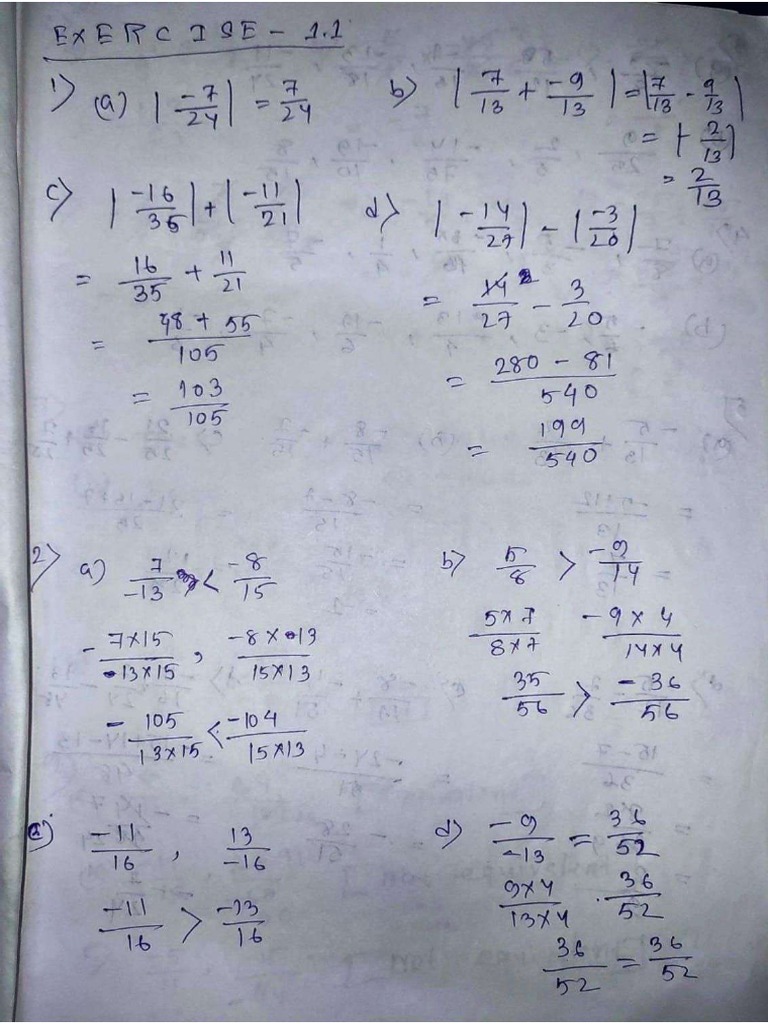 EXERCISE - 1.1
1) (a) |-7/24| = 7/24
b) |7/13 + -9/13| = |7/13 - 9/13|
= |-2/13|
= 2/13
c) |-16/35| + |-11/21|
= 16/35 + 11/21
= 48 + 55/105
= 103/105
d) |-14/27| - |-3/20|
= 14/27 - 3/20
= 280 - 81/540
= 199/540
2) a) 7/-13 < -8/15
- 7×15/13×15 , -8×13/15×13
- 105/13×15 < -104/15×13
b) 5/8 > -9/14
5×7/8×7 -9×4/14×4
35/56 > -36/56
c) -11/16 , 13/-16
-11/16 > -13/16
d) -9/-13 = 36/52
9×4/13×4 . 36/52
36/52 = 36/52